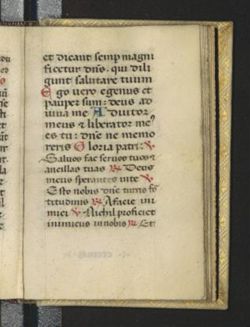 et dicant semp magni
ficetur dñs. qui dili
gunt salutare tuum
Ego vero egenus et
pauper sum: deus ad
iuua me Adiutor
meus et liberator me
es tu: dñe ne memo
reris Gloria patri: ℣
Saluos fac seruos tuos et
ancillas tuas ℟ Deus
meus sperantes in te ℣
Esto nobis dñe turris fo
titudinis ℟ A facie ini
mici ℣ Nichil proficiet
inimicus in nobis ℟ Et